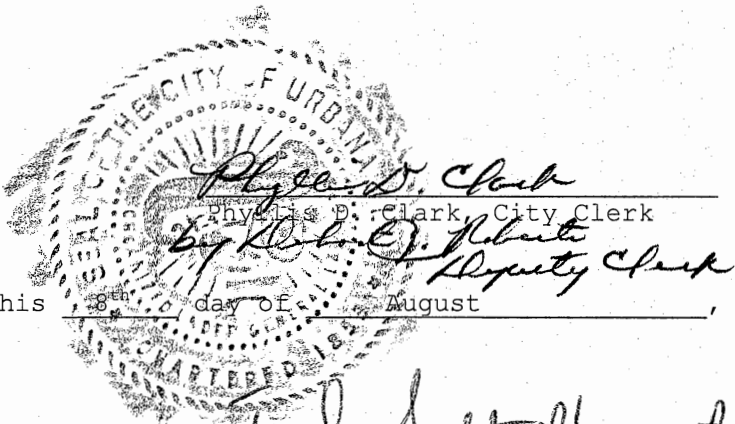 SEAL OF THE CITY OF URBANA
CHARTERED
Phyllis D. Clark
Phyllis D. Clark, City Clerk
by Roberts
Deputy Clerk
his 8th day of August,